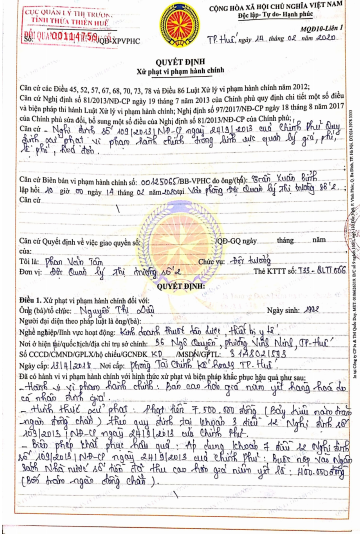 CỤC QUẢN LÝ THỊ TRƯỜNG
TỈNH THỪA THIÊN HUẾ
CỘNG HÒA XÃ HỘI CHỦ NGHĨA VIỆT NAM
Độc lập - Tự do - Hạnh phúc
MQĐ10-Liên 1
Số: 00114759 /QĐ-XPVPHC
TP. Huế, ngày 14 tháng 02 năm 2020
QUYẾT ĐỊNH
Xử phạt vi phạm hành chính
Căn cứ các Điều 45, 52, 57, 67, 68, 70, 73, 78 và Điều 86 Luật Xử lý vi phạm hành chính năm 2012;
Căn cứ Nghị định số 81/2013/NĐ-CP ngày 19 tháng 7 năm 2013 của Chính phủ quy định chi tiết một số điều
và biện pháp thi hành Luật Xử lý vi phạm hành chính; Nghị định số 97/2017/NĐ-CP ngày 18 tháng 8 năm 2017
của Chính phủ sửa đổi, bổ sung một số điều của Nghị định số 81/2013/NĐ-CP của Chính phủ;
Căn cứ - Nghị định số 109/2013/NĐ-CP ngày 24/9/2013 của Chính phủ quy
định xử phạt vi phạm hành chính trong lĩnh vực quản lý giá, phí,
lệ phí, hoá đơn.
Căn cứ Biên bản vi phạm hành chính số: 00125065/BB-VPHC do ông(bà): Trần Xuân Bình
lập hồi 10 giờ 00 ngày 14 tháng 02 năm 2020 tại Văn phòng Đội Quản lý thị trường số 2.
Căn cứ
Căn cứ Quyết định về việc giao quyền số: /QĐ-GQ ngày tháng năm
của
Tôi là: Phan Văn Tám Chức vụ: Đội trưởng
Đơn vị: Đội Quản lý thị trường số 2 Thẻ KTTT số: T33-QLTT 056
QUYẾT ĐỊNH:
Điều 1. Xử phạt vi phạm hành chính đối với:
Ông (bà)/tổ chức: Nguyễn Thị Ngày sinh:
Người đại diện theo pháp luật là ông/(bà):
Nghề nghiệp/lĩnh vực hoạt động: Kinh doanh thuốc tân dược, thiết bị y tế.
Nơi ở hiện tại/quốc tịch/địa chỉ trụ sở chính: 36 Ngô Quyền, phường Vĩnh Ninh, TP Huế
Số CCCD/CMND/GPLX/hộ chiếu/GCNĐK KD /MSDN/GPTL:
Ngày cấp: Nơi cấp: Phòng Tài Chính Kế hoạch TP. Huế
Đã có hành vi vi phạm hành chính với hình thức xử phạt và biện pháp khắc phục hậu quả như sau:
- Hành vi vi phạm hành chính: Bán cao hơn giá niêm yết hàng hoá do
cá nhân định giá.
- Hình thức xử phạt: Phạt tiền 7.500.000 đồng (Bảy triệu năm trăm
ngàn đồng chẵn) theo quy định tại khoản 3 điều 12 Nghị định số
109/2013/NĐ-CP, ngày 24/9/2013 của Chính Phủ.
- Biện pháp khắc phục hậu quả: Áp dụng khoản 7 điều 12 Nghị định
số 109/2013/NĐ-CP ngày 24/9/2013 của Chính phủ: Buộc nộp vào Ngân
sách Nhà nước số tiền đã thu cao hơn giá niêm yết là: 400.000 đồng
(Bốn trăm ngàn đồng chẵn).